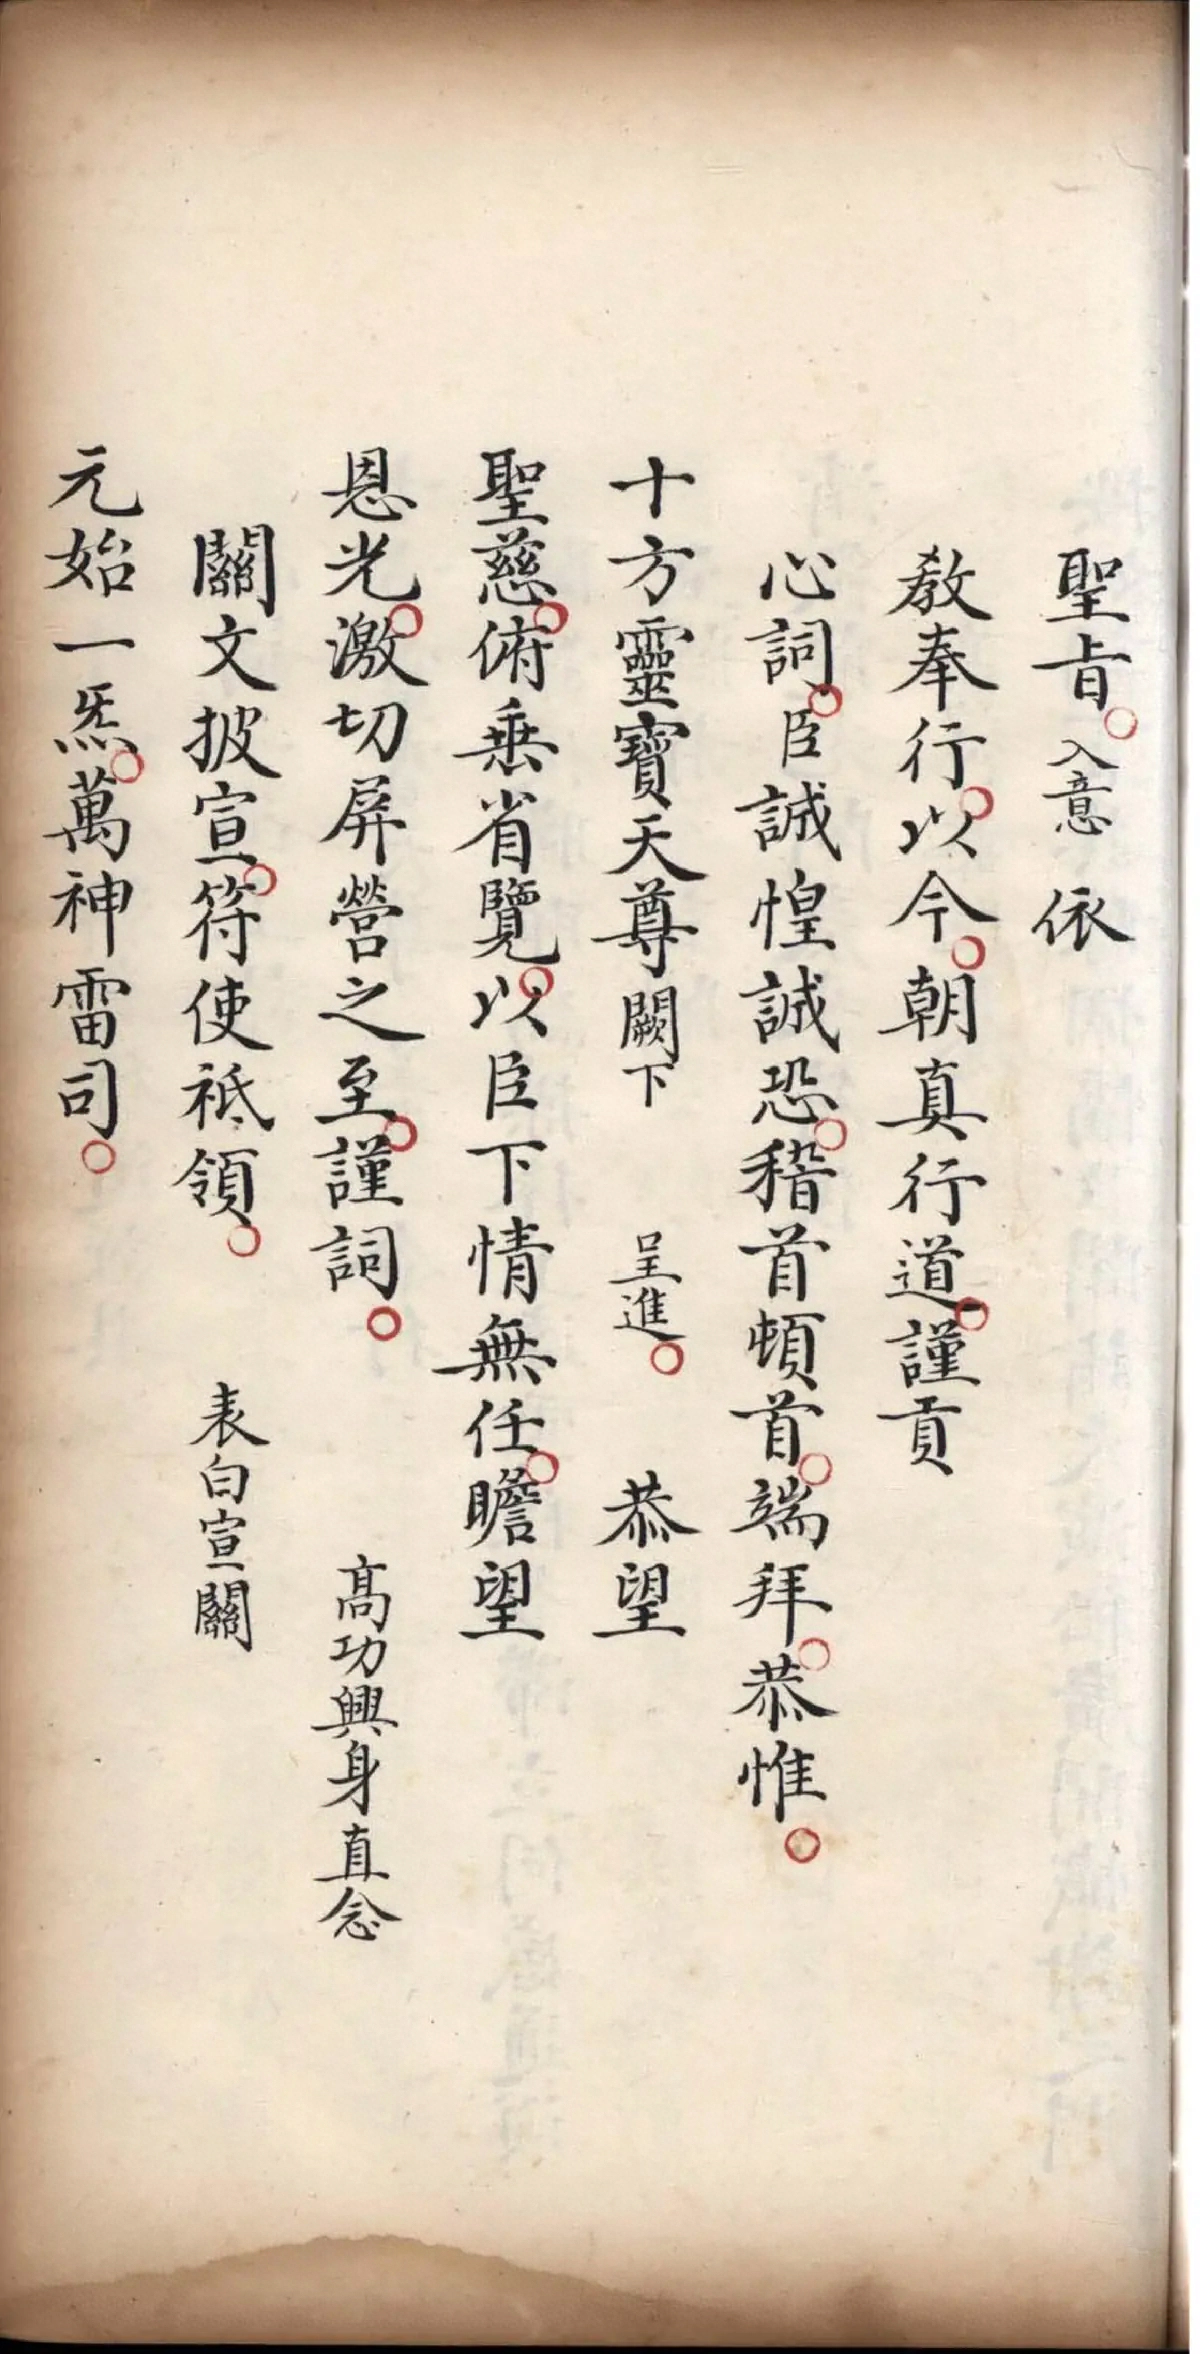 聖㫖○入意 依
教奉行○以今○朝真行道○謹貢
心詞○臣誠惶誠恐○稽首頓首○端拜○恭惟○
十方靈寶天尊闕下 呈進○ 恭望
聖慈○俯垂省覽○以臣下情無任○瞻望
恩光○激切屏營之至○謹詞○ 髙功興身直念
關文披宣○符使祗領○ 表白宣關
元始一炁○萬神雷司○